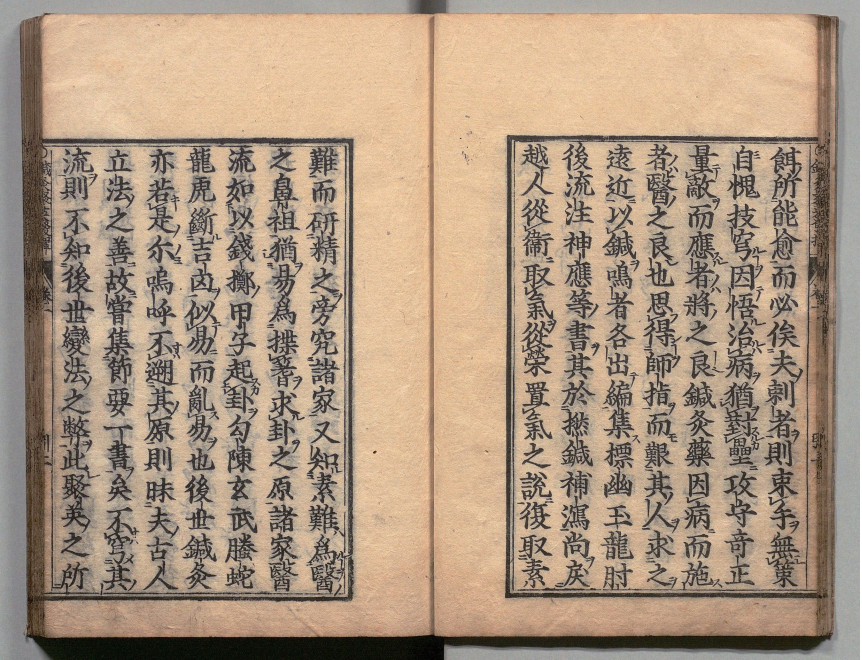 餌所能愈而必俟夫刺者則束手無策
自愧技穷因悟治病猶對壘攻守竒正
量敵而應者將之良鍼灸藥因病而施
者醫之良也思得師指而艱其人求之
遠近以鍼鳴者各出編集標幽玉龍肘
後流注神應等書其於撚鍼補瀉尚戾
越人從衞取氣從榮置氣之說復取素
難而研精之旁究諸家又知素難爲醫
之鼻祖猶易爲揲蓍求卦之原諸家醫
流如以錢擲甲子起卦勾陳玄武螣蛇
龍虎斷吉凶似易而亂易也後世鍼灸
亦若是尓嗚呼不遡其原則昧夫古人
立法之善故嘗集節要一書矣不窮其
流則不知後世變法之弊此聚英之所